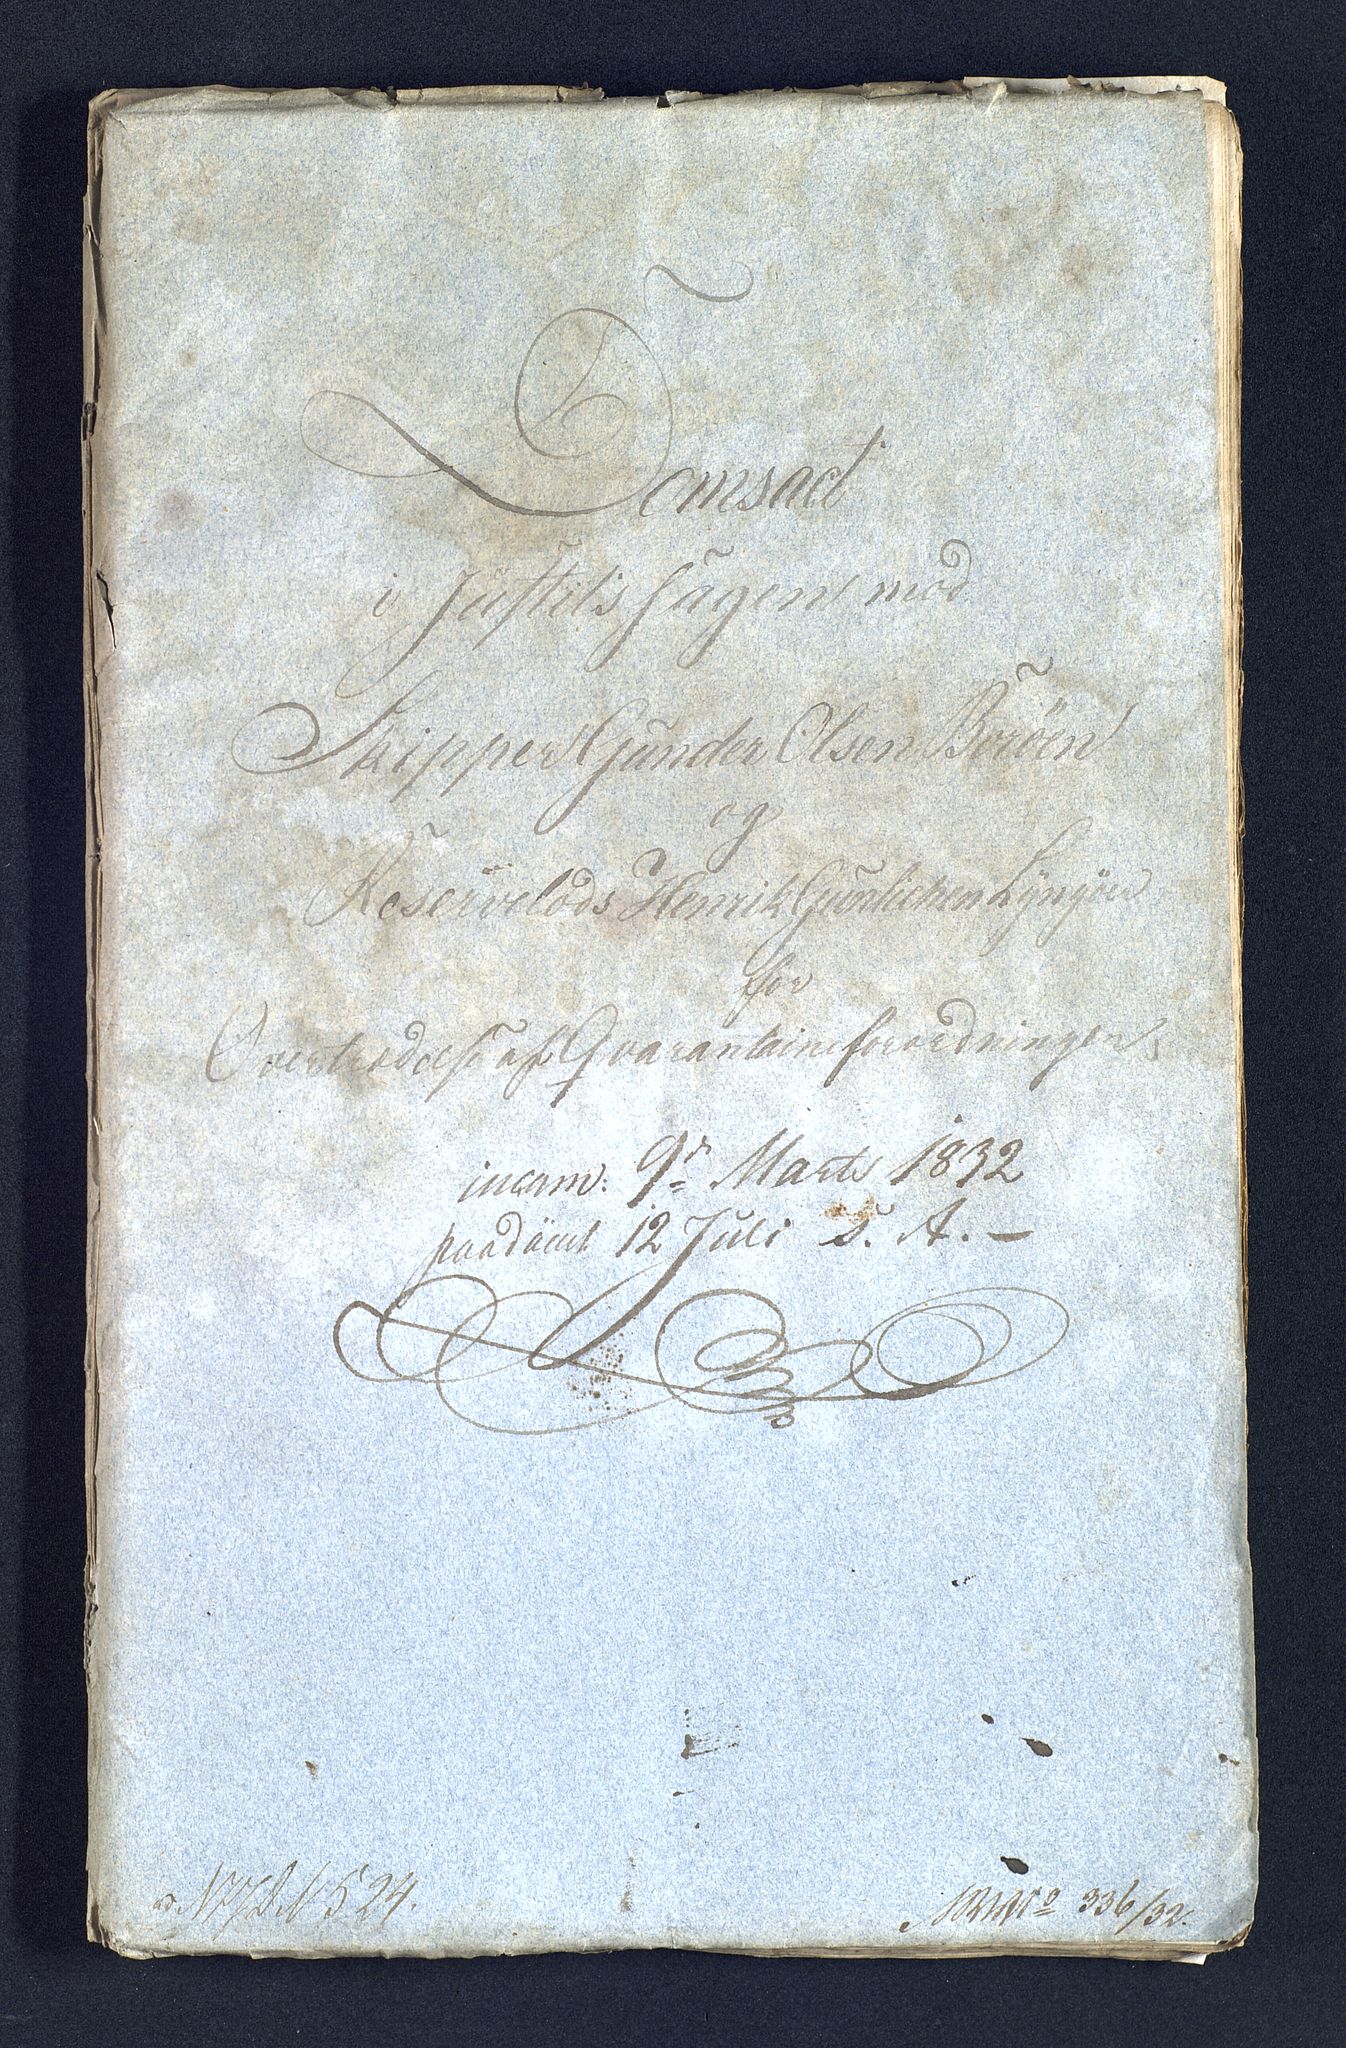 Domsact
i Justits Sagen mod
Skipper Gunder Olsen Boröen
og
Reservelods Henrik Gunlichsen Lyngöer
for
Overtrædelse af Qvarantaineforordningen
incam: 9de Marts 1832
paadömt 12 Juli s. A. —
ad. N 524.
No 336/32.